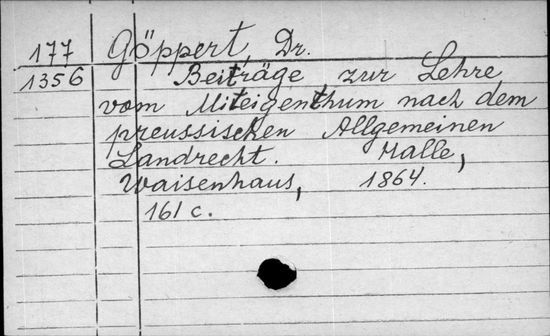 177 Göppert, Dr.
1356 Beiträge zur Lehre
vom Miteigenthum nach dem
preussischen Allgemeinen
Landrecht. Halle,
Waisenhaus, 1864.
161 c.